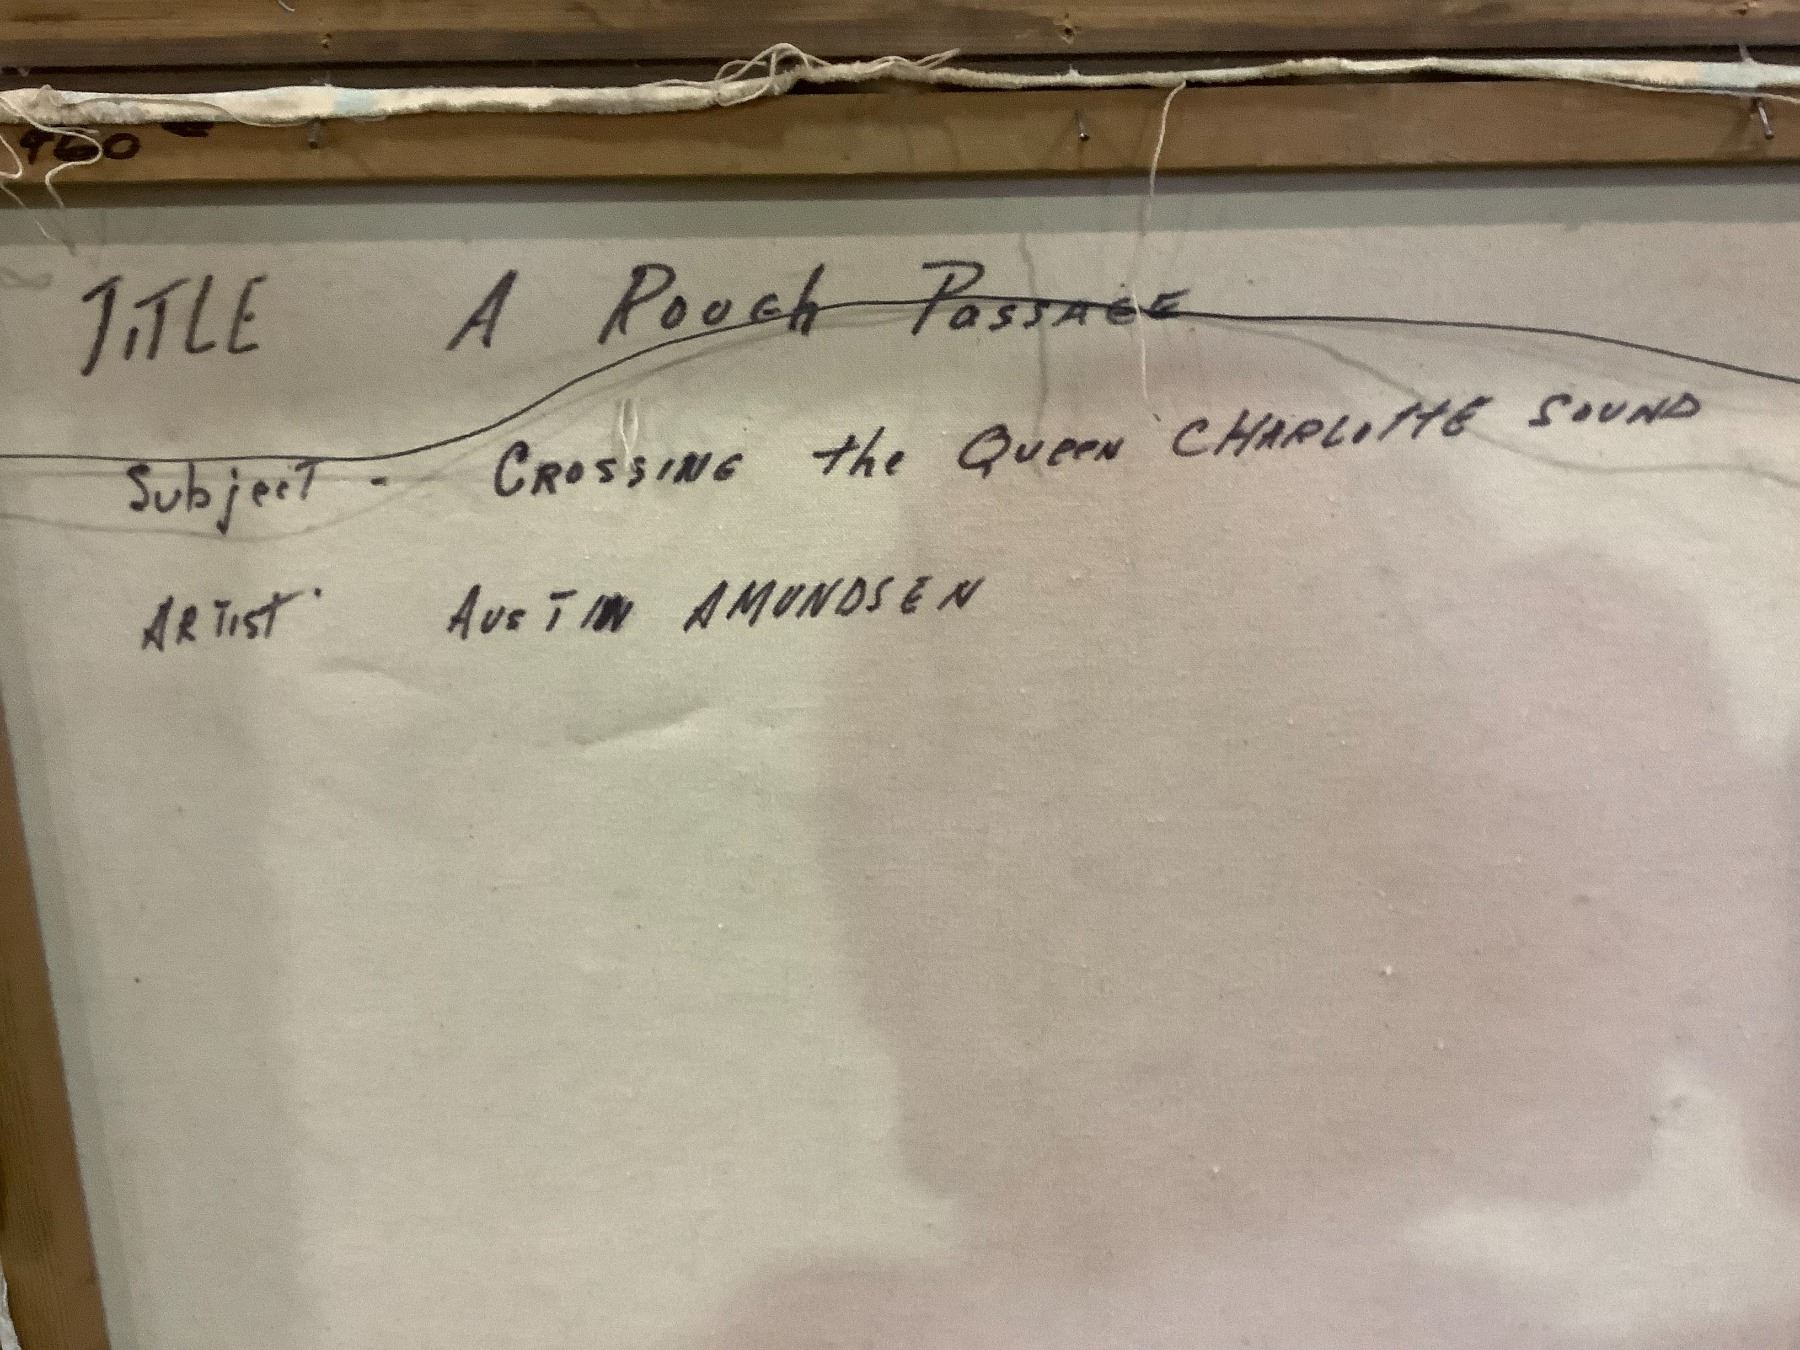 960
TITLE A Rough Passage
Subject - CROSSING the Queen CHARLOTTE SOUND
ARTIST AUSTIN AMUNDSEN